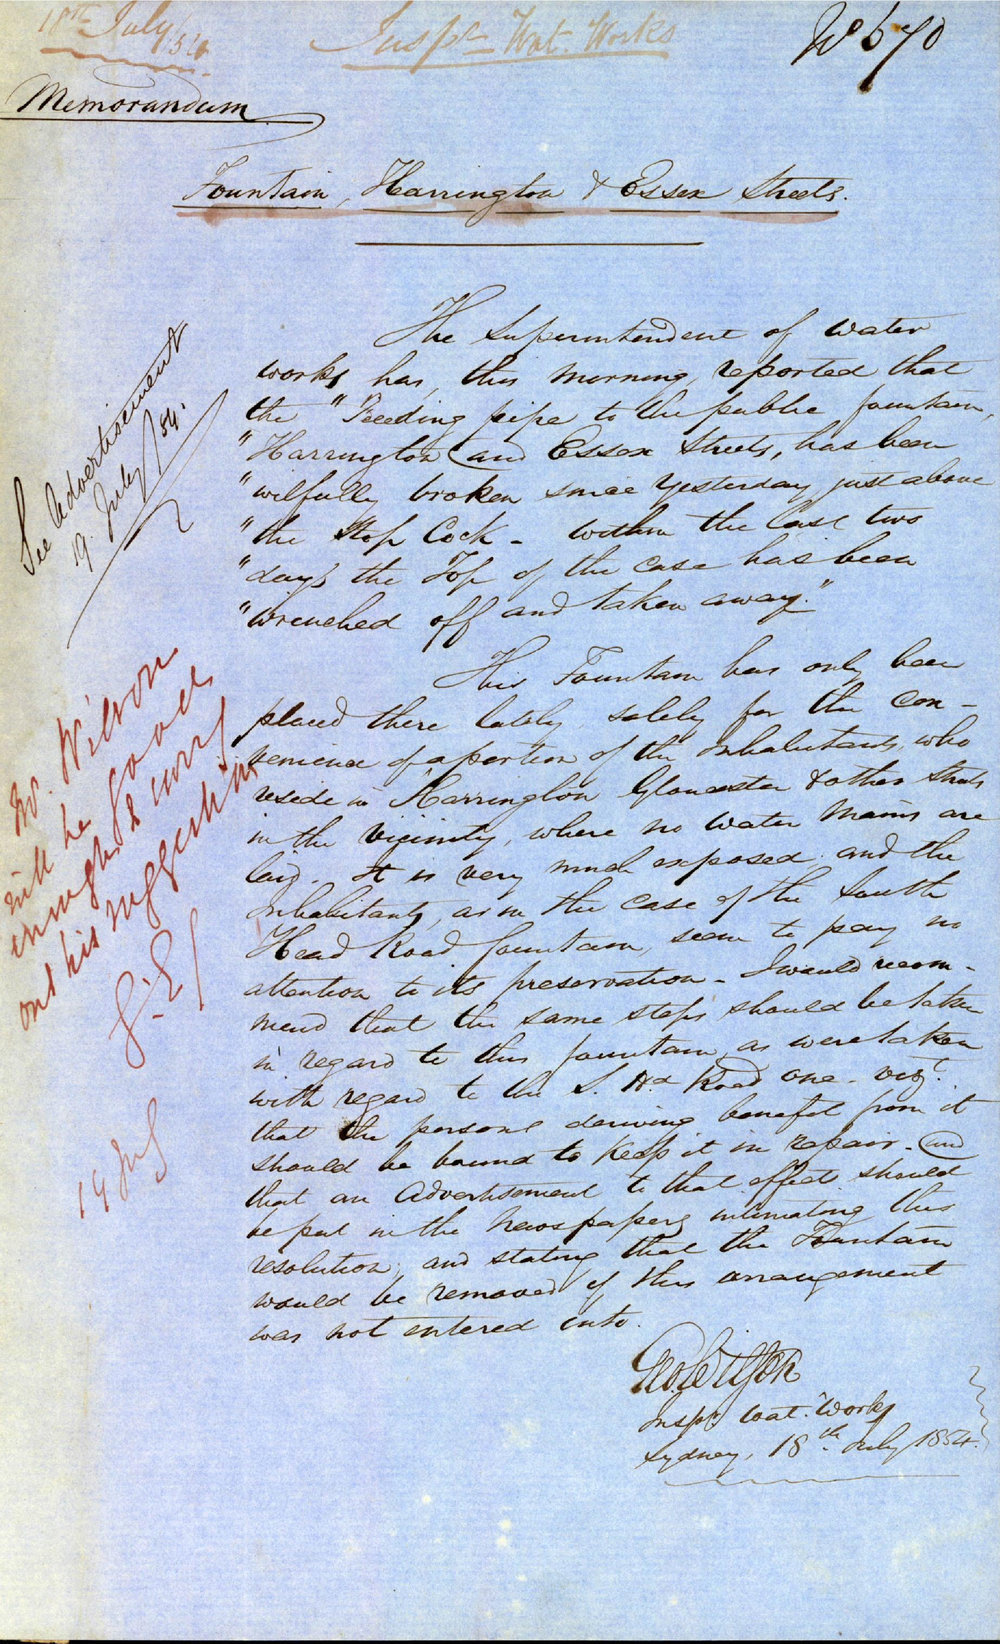 18th July /54.
Inspr. Wat. Works
No 570
Memorandum
Fountain, Harrington & Essex Streets.
The Superintendent of Water
works has, this morning, reported that
the "Feeding pipe to the public fountain,
"Harrington and Essex Streets, has been
"wilfully broken since yesterday just above
"the Stop Cock - within the last two
"days the Top of the case has been
"wrenched off and taken away."
This Fountain has only been
placed there lately solely for the con-
venience of a portion of the Inhabitants, who
reside in Harrington Gloucester & other Streets
in the vicinity, where no Water Mains are
laid. It is very much exposed and the
Inhabitants, as in the case of the South
Head Road fountain, seem to pay no
attention to its preservation - I would recom-
mend that the same steps should be taken
in regard to this fountain, as were taken
with regard to the S. Hd Road one - vizt.
that the persons deriving benefit from it
should be bound to keep it in repair - and
that an Advertisement to that effect should
be put in the Newspapers intimating this
resolution; and stating that the Fountain
would be removed if this arrangement
was not entered into.
Geo Wilson
Inspr. Wat. Works
Sydney, 18th July 1854.
See Advertisement
19 July /54.
Mr. Wilson
will be
enough good
& carry
out his suggestion
19 July